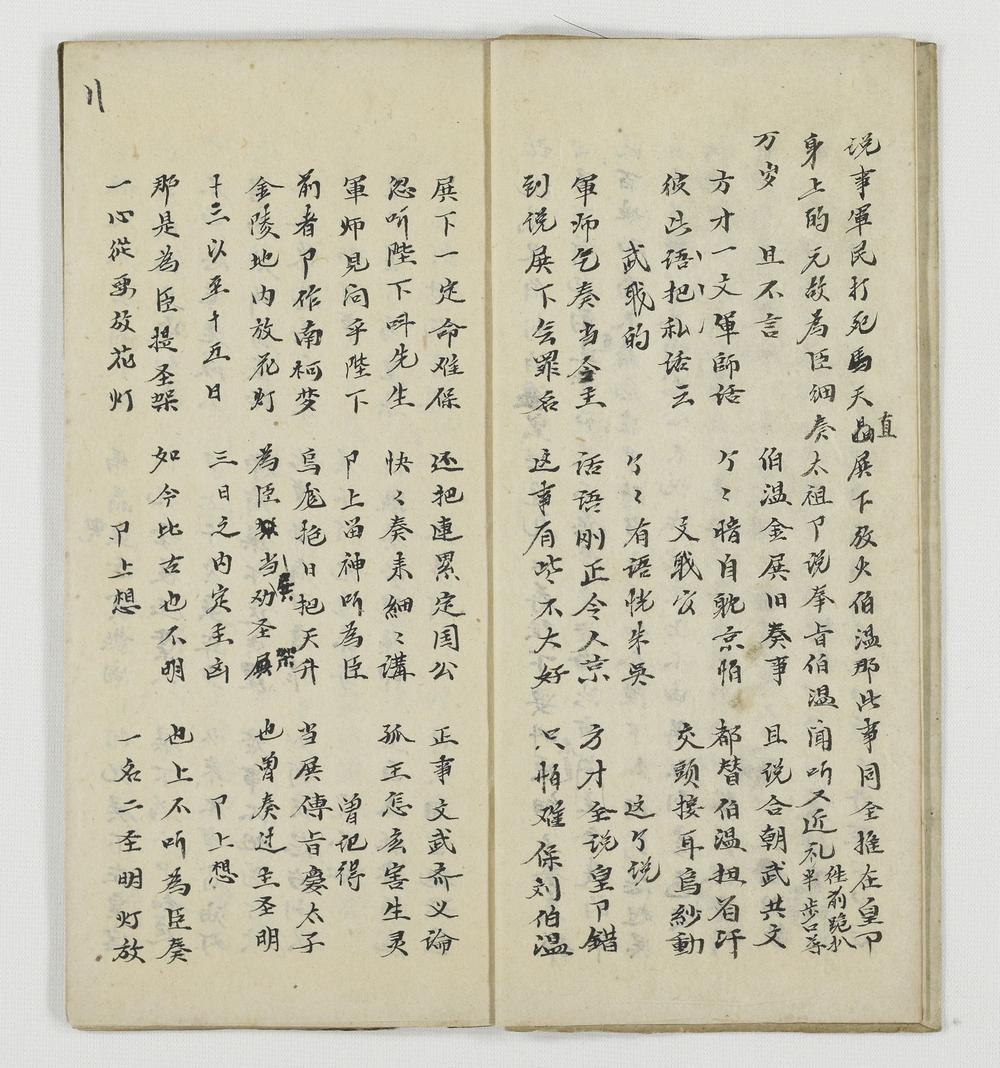 说事軍民打死馬天 直殿下放火伯温那此事同全推在皇卩
身上的元故為臣細奏太祖卩说奉旨伯温闻听又近礼半步口尊往前跪扒
万岁 且不言 伯温金殿旧奏事 且说合朝武共文
方才一文軍師话 个〻暗自耽京怕 都替伯温担着汗
彼此语把私话云 文戝官 交頭接耳烏紗動
武戝的 个〻有语恍朱吳 这个说
軍师乞奏当今主 话语刚正令人京 方才全说皇卩錯
到说殿下会罪名 这事有些不大好 只怕难保刘伯温
殿下一定命难保 还把連累定国公 正事文武斉义论
忽听陛下叫先生 快〻奏来細〻講 孤王怎玄害生灵
軍师見问乎陛下 卩上留神听為臣 曾记得
前者卩作南柯梦 烏龙抱日把天升 当殿傳旨慶太子
金陵地内放花灯 為臣 当殿劝圣架 也曾奏过主圣明
十三以至十五日 三日之内定主凶 卩上想
那是為臣提圣架 如今比古也不明 也上不听為臣奏
一心從要放花灯 卩上想 一名二圣明灯放